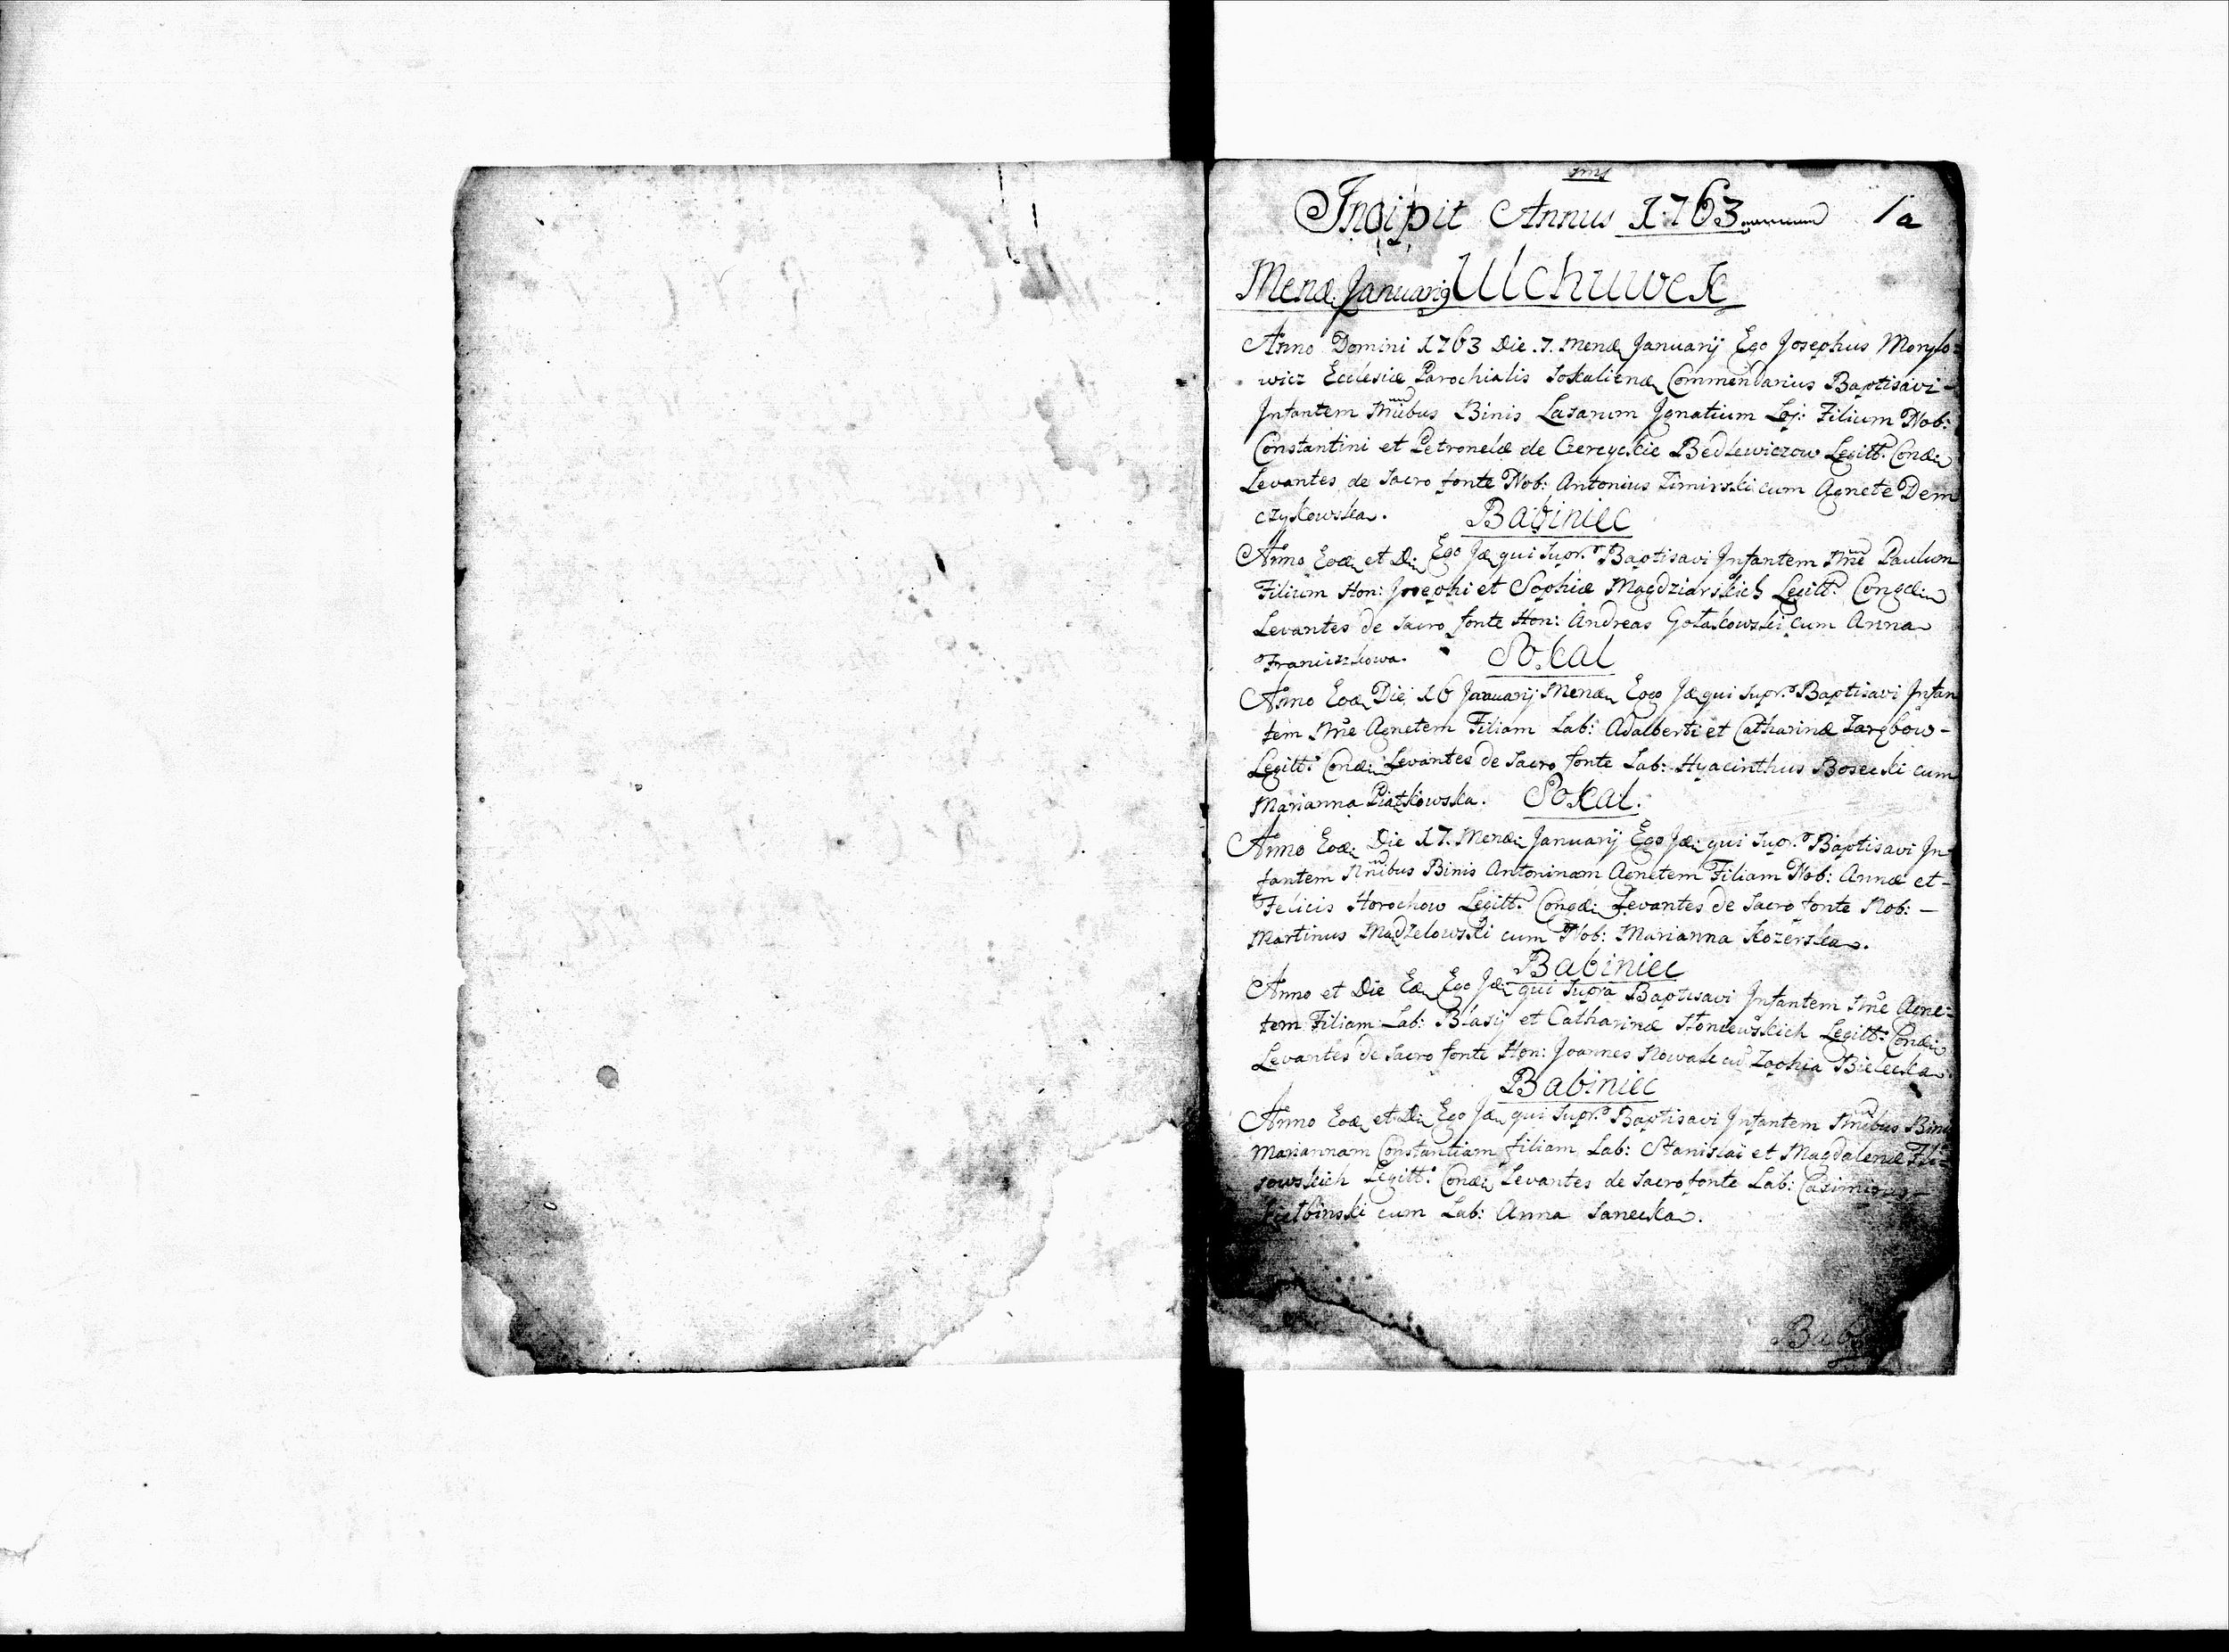 Incipit Annus 1763 1a
Mensis Januarij Ulchuwek
Anno Domini 1763 Die .7. Mens Januarij Ego Josephus Morylo=
wicz Ecclesiæ Parochialis Sokaliens Commendarius Baptisavi -
Infantem Nnibus Binis Lasarum Ignatium Filium Nob:
Constantini et Petronelæ de Bedlewiczow Legitt: Conda
Levantes de Sacro fonte Nob: Antonius Zimirski cum Agnete Dem
czykowska. Babiniec
Anno Eod et Di Ego Id qui Supr: Baptisavi Infantem Nne Paulum
Filium Hon: Josephi et Sophiæ Magdziarskich Legitt:
Levantes de Sacro fonte Hon: Andreas Gołaskowski cum Anna
Franciszkowa. Sokal
Anno Eod Die 16 Januarij Mens Ego Id qui Supr: Baptisavi Infan
tem Nne Agnetem Filiam Lab: Adalberti et Catharinæ Zarębow -
Legitt: Cond Levantes de Sacro fonte Lab: Hyacinthus Bosecki cum
Marianna Piątkowska. Sokal.
Anno Eod Die 17. Mens Januarij Ego Id qui Supr: Baptisavi In
fantem Nnibus Binis Antoninam Agnetem Filiam Nob: Annæ et -
Felicis Horochow Legitt: Levantes de Sacro fonte Nob: -
Martinus Madzelowski cum Nob: Marianna Kozerska.
Babiniec
Anno et Die Ed Ego Id qui Supra Baptisavi Infantem Nne Agne=
tem Filiam Lab: Blasij et Catharinæ Słoniewskich Legitt: Cond
Levantes de Sacro fonte Hon: Joannes Nowak cu Zophia Bielecka
Babiniec
Anno Eod et Di Ego Id qui Supr: Baptisavi Infantem Nnibus Binis
Mariannam Constantiam filiam Lab: Stanislai et Magdalenæ
sowskich Legitt: Cond Levantes de Sacro fonte Lab: Casimirus
cum Lab: Anna Sanecka.
Bab